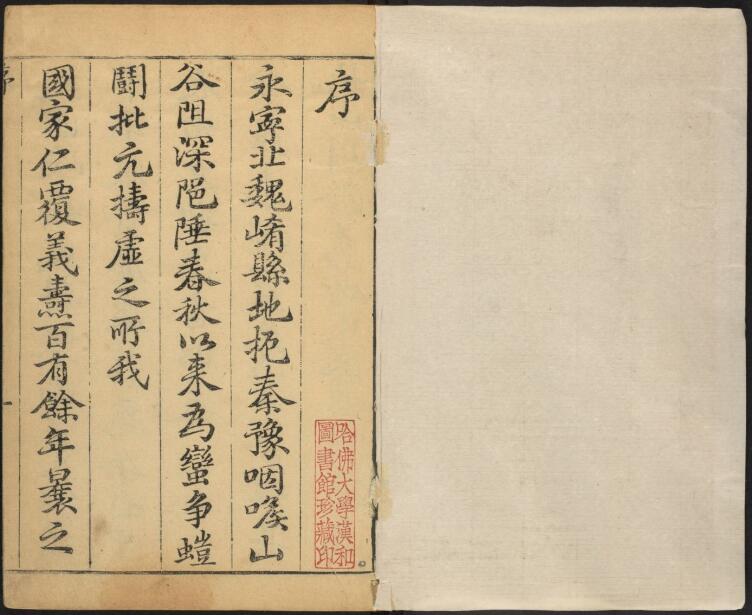 序
永寧北魏崤縣地扼秦豫咽喉山
谷阻深陁陲春秋以来為蠻争螘
鬪批亢擣虛之所我
國家仁覆義燾百有餘年曩之
哈佛大學漢和
圖書館珍藏印
序
一